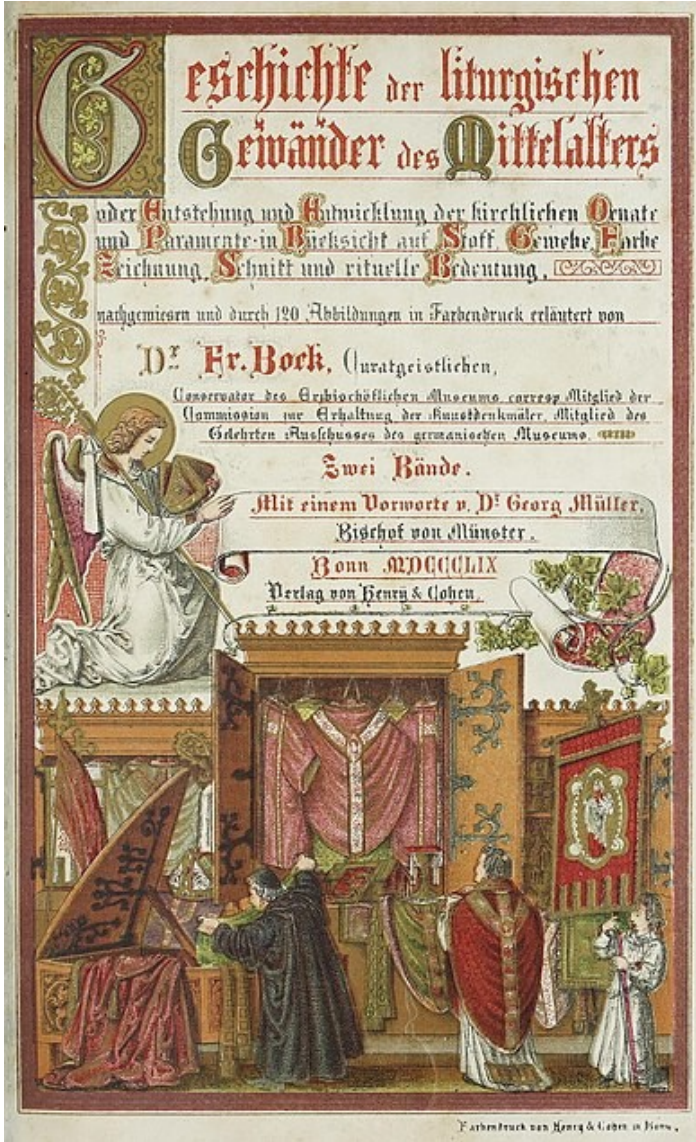 Geschichte der liturgischen
Gewänder des Mittelalters
oder Entstehung und Entwicklung der kirchlichen Ornate
und Paramente in Rücksicht auf Stoff, Gewebe, Farbe
Zeichnung, Schnitt und rituelle Bedeutung,
nachgewiesen und durch 120 Abbildungen in Farbendruck erläutert von
Dr Fr. Bock, Curatgeistlichen,
Conservator des Erzbischöflichen Museums corresp Mitglied der
Commission zur Erhaltung der Kunstdenkmäler, Mitglied des
Gelehrten Ausschusses des germanischen Museums.
Zwei Bände.
Mit einem Vorworte v. Dr Georg Müller,
Bischof von Münster.
Bonn MDCCCLIX
Verlag von Henry & Cohen.
Farbendruck von Henry & Cohen in Bonn.